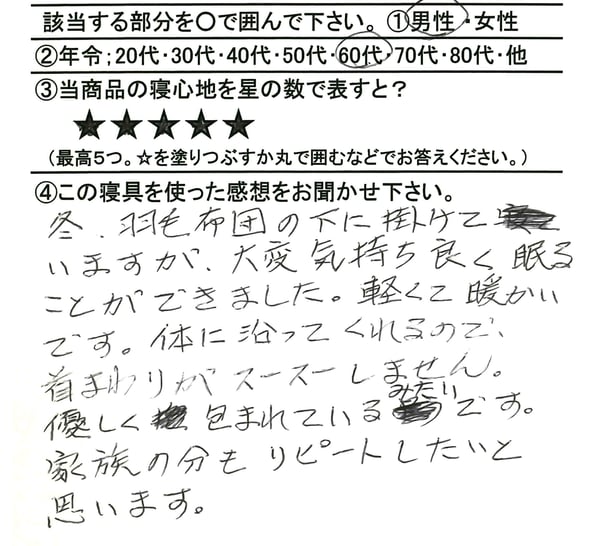 該当する部分を〇で囲んで下さい。①男性・女性
②年令;20代・30代・40代・50代・60代・70代・80代・他
③当商品の寝心地を星の数で表すと?
★★★★★
(最高5つ。☆を塗りつぶすか丸で囲むなどでお答えください。)
④この寝具を使った感想をお聞かせ下さい。
冬、羽毛布団の下に掛けて
いますが、大変気持ち良く眠る
ことができました。軽くて暖かい
です。体に沿ってくれるので、
首まわりがスースーしません。
優しく包まれているみたいです。
家族の分もリピートしたいと
思います。